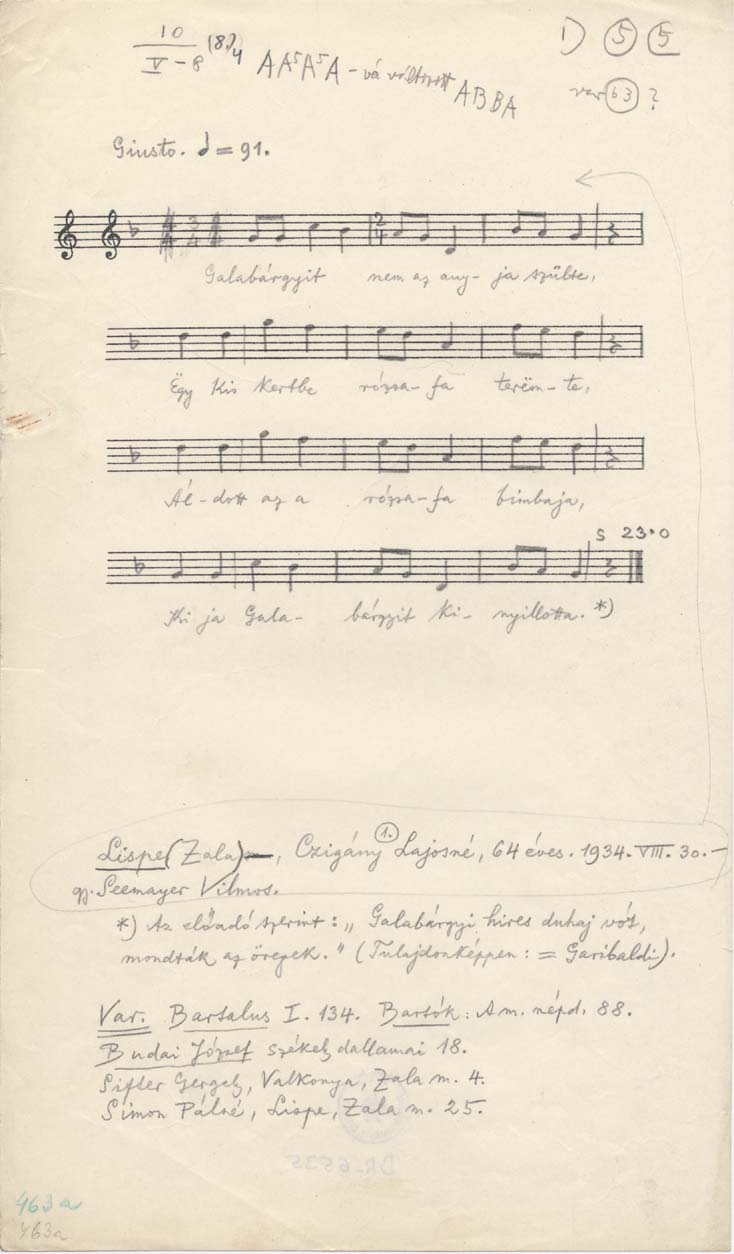 10
V-8 (8.)4 AA⁵A⁵A - vá változott ABBA
1) 5 5
var 63 ?
Giusto. ♩ = 91.
3/4 2/4
Galabárgyit nem az any- ja szülte,
Ëgy kis kertbe rózsa-fa terëm-te,
Ál-dott az a rózsa-fa bimbaja,
S 23·0
Ki ja Gala- bárgyit ki- nyillotta. *)
1.
Lispe (Zala), Czigány Lajosné, 64 éves. 1934. VIII. 30.-
gy. Seemayer Vilmos.
*) Az előadó szerint: „Galabárgyi hires duhaj vót,
mondták az öregek." (Tulajdonképpen: = Garibaldi.).
Var. Bartalus I. 134. Bartók: A m. népd. 88.
Budai József székely dallamai 18.
Sifter Gergely, Valkonya, Zala m. 4.
Simon Pálné, Lispe, Zala m. 25.
DR-6535
463a
463a